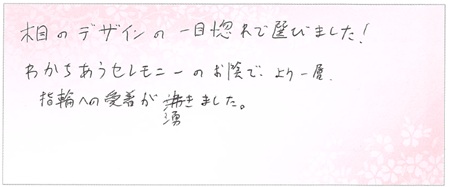 木目のデザインの一目惚れで選びました!
わかちあうセレモニーのお陰で、より一層、
指輪への愛着が湧きました。